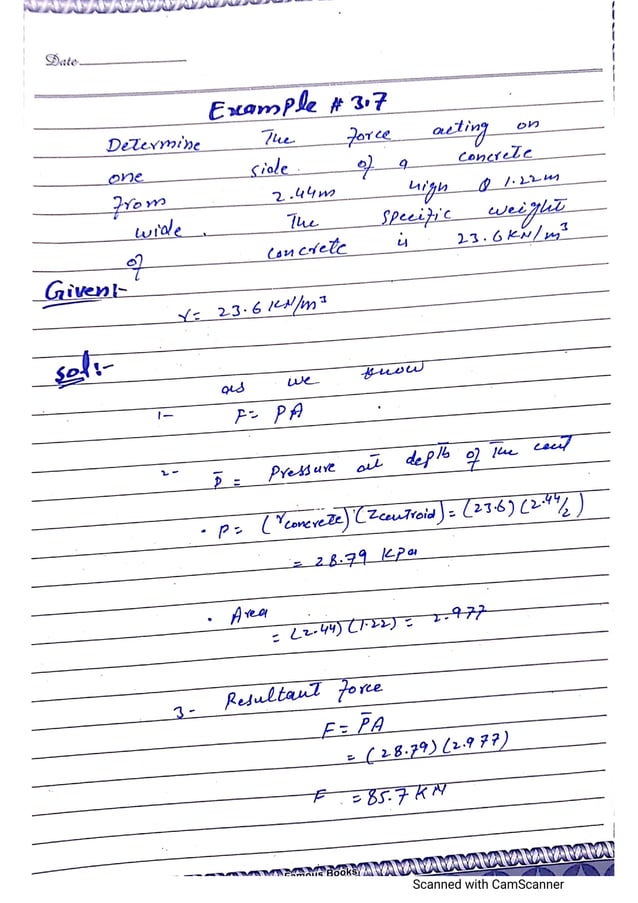 Date
Example # 3.7
Determine The Force acting on
one side of a concrete
from 2.44m high & 1.22m
wide. The specific weight
of concrete is 23.6 KN/m³
Given:-
γ = 23.6 KN/m³
Sol:-
as we know
1- F= PA
2- P̄ = Pressure at depth of The cent
• P = (γconcrete) (Zcentroid) = (23.6) (2.44/2)
= 28.79 KPa
• Area
= (2.44) (1.22) = 2.977
3- Resultant force
F = P̄A
= (28.79) (2.977)
F = 85.7 KN
Famous Books
Scanned with CamScanner